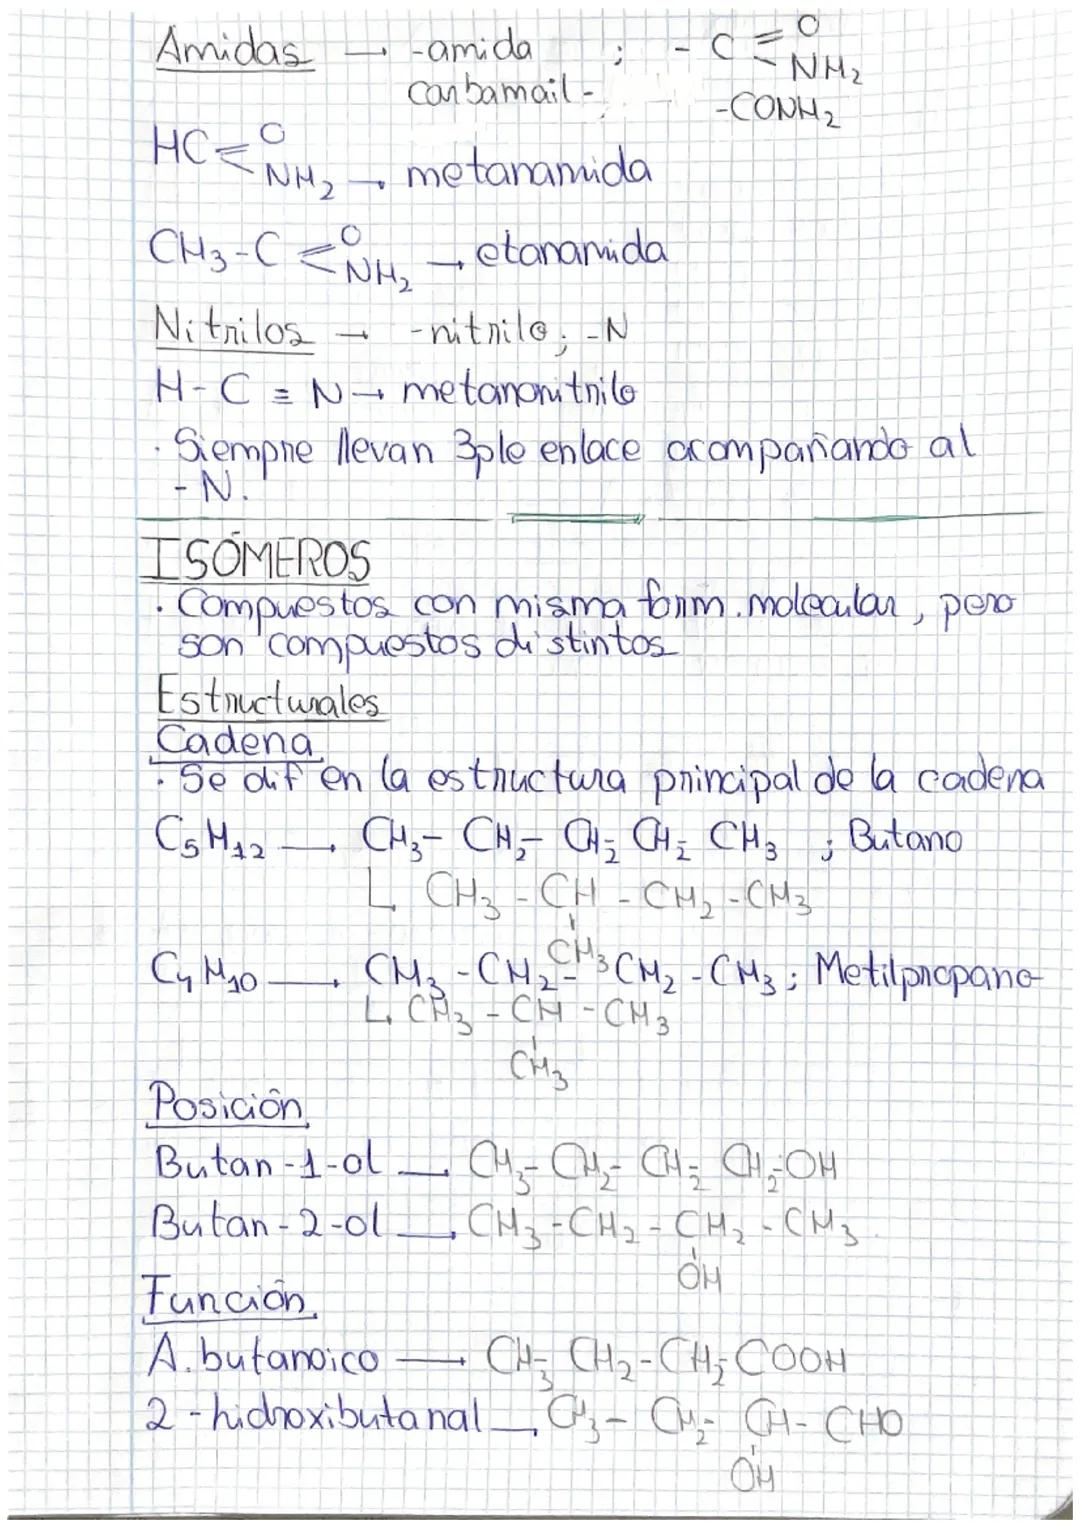 Amidas → -amida ; - C ≤ O
NH₂
carbamail-
-CONH₂
HC ≤ O
NH₂ → metanamida
CH₃-C ≤ O
NH₂ → etanamida
Nitrilos → -nitrilo; -N
H-C≡N → metanonitrilo
· Siempre llevan 3ple enlace acompañando al
-N.
ISÓMEROS
· Compuestos con misma form. molecular, pero
son compuestos distintos
Estructurales
Cadena
· Se dif en la estructura principal de la cadena
C₅H₁₂ → CH₃-CH₂-CH₂-CH₂-CH₃ ; Butano
↳ CH₃-CH-CH₂-CH₃
CH₃
C₄H₁₀ → CH₃-CH₂-CH₂-CH₃; Metilpropano
↳ CH₃-CH-CH₃
CH₃
Posición
Butan-1-ol → CH₃-CH₂-CH₂-CH₂-OH
Butan-2-ol → CH₃-CH₂-CH₂-CH₃
OH
Función
A. butanoico → CH₃-CH₂-CH₂-COOH
2-hidroxibutanal → CH₃-CH₂-CH-CHO
OH